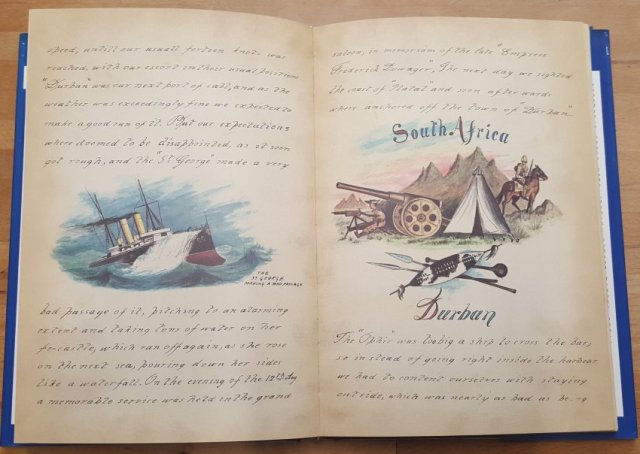 speed, untill our usuall forteen knots was
reached, with our escort in their usual positions
"Durban" was our next port of call, and as the
weather was exceedingly fine we expected to
make a good run of it. But our expectations
where doomed to be disappointed, as it soon
got rough, and the "St George" made a very
THE
ST GEORGE
MAKING A BAD PASSAGE
bad passage of it, pitching to an alarming
extent and taking tons of water on her
fo-castle, which ran off again, as she rose
on the next sea, pouring down her sides
like a waterfall. On the evening of the 12th day
a memorable service was held in the grand
saloon, in memoriam of the late "Empress
Frederick Dowager". The next day we sighted
the coast of "Natal" and soon after wards
where anchored off the town of "Durban"
South Africa
Durban
The "Ophir" was to big a ship to cross the bar,
so instead of going right inside the harbour
we had to content ourselves with staying
outside, which was nearly as bad as be